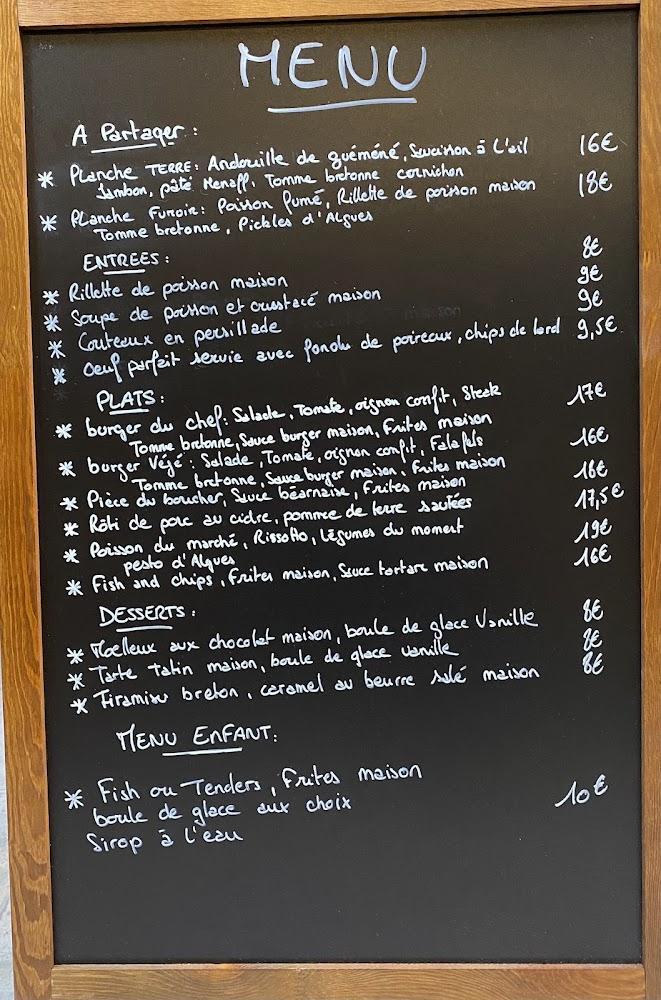 MENU
A Partager :
* Planche TERRE: Andouille de guémené, Saucisson à l'ail 16€
Jambon, pâté Henaff, Tomme bretonne cornichon
* Planche FUMOIR: Poisson fumé, Rillette de poisson maison 18€
Tomme bretonne, Pickles d'Algues
ENTREES :
* Rillette de poisson maison 8€
* Soupe de poisson et crustacé maison 9€
* Couteaux en persillade 9€
* Oeuf parfait servie avec fondu de poireaux, chips de lard 9,5€
PLATS :
* burger du chef: Salade, Tomate, oignon confit, Steak 17€
Tomme bretonne, Sauce burger maison, Frites maison
* burger Végé : Salade, Tomate, oignon confit, Falafels 16€
Tomme bretonne, Sauce burger maison, Frites maison
* Pièce du boucher, Sauce béarnaise, Frites maison 18€
* Rôti de porc au cidre, pomme de terre sautées 17,5€
* Poisson du marché, Rissotto, Légumes du moment 19€
pesto d'Algues
* Fish and chips, Frites maison, Sauce tartare maison 16€
DESSERTS :
* Moelleux aux chocolat maison, boule de glace Vanille 8€
* Tarte Tatin maison, boule de glace vanille 8€
* Tiramisu breton, caramel au beurre salé maison 8€
MENU ENFANT:
* Fish ou Tenders, Frites maison 10€
boule de glace aux choix
Sirop à l'eau